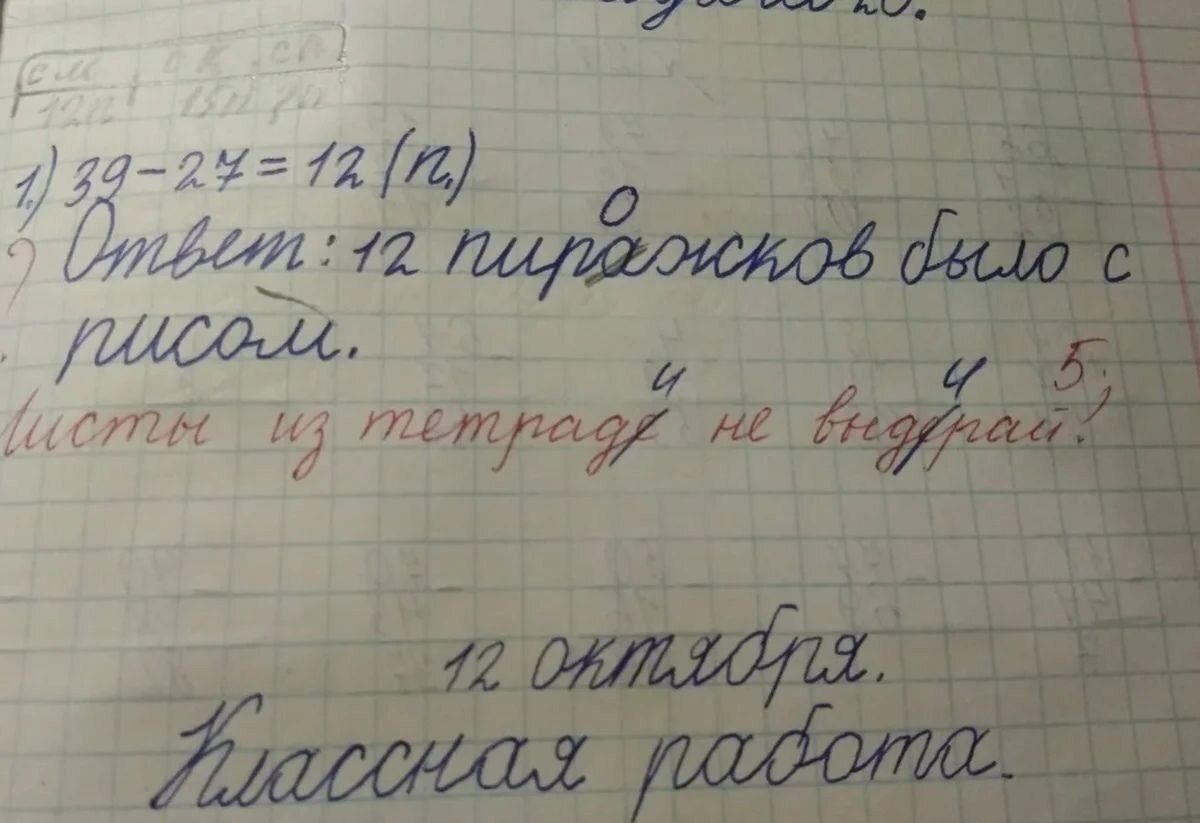 см ск сп
12п 15п
1.) 39-27=12 (п.)
Ответ: 12 пирожков было с
рисом.
5;
Листы из тетради не выдирай!
12 октября.
Классная работа.